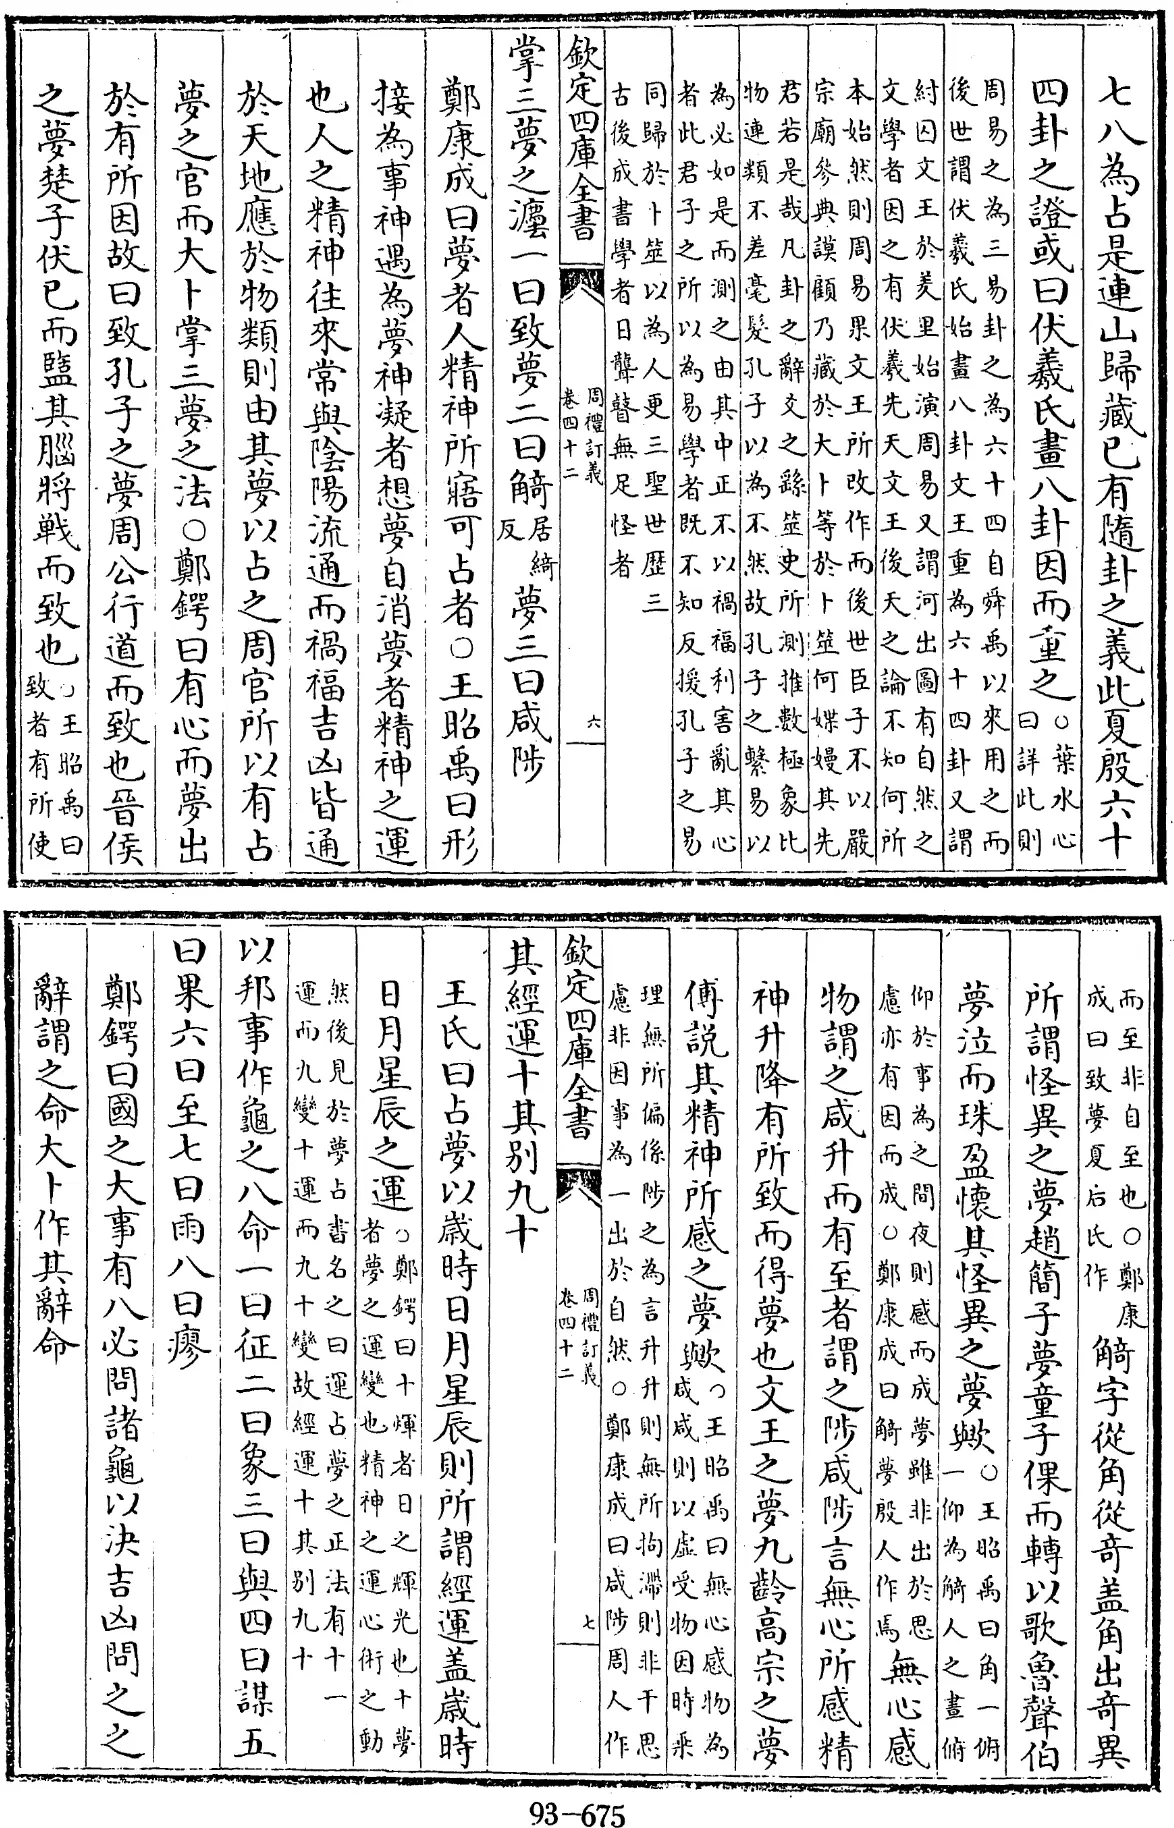 七八為占是連山歸藏已有隨卦之義此夏殷六十
四卦之證或曰伏羲氏畫八卦因而重之○葉水心
曰詳此則
周易之為三易卦之為六十四自舜禹以來用之而
後世謂伏羲氏始畫八卦文王重為六十四卦又謂
紂囚文王於羑里始演周易又謂河出圖有自然之
文學者因之有伏羲先天文王後天之論不知何所
本始然則周易果文王所改作而後世臣子不以嚴
宗廟參典謨顧乃藏於大卜等於卜筮何媟嫚其先
君若是哉凡卦之辭爻之繇筮史所測推數極象比
物連類不差毫髮孔子以為不然故孔子之繫易以
為必如是而測之由其中正不以禍福利害亂其心
者此君子之所以為易學者既不知反援孔子之易
同歸於卜筮以為人更三聖世歷三
古後成書學者日聾瞽無足怪者
欽定四庫全書
周禮訂義
卷四十二
六
掌三夢之灋一曰致夢二曰觭居綺
反夢三曰咸陟
鄭康成曰夢者人精神所寤可占者○王昭禹曰形
接為事神遇為夢神凝者想夢自消夢者精神之運
也人之精神往來常與陰陽流通而禍福吉凶皆通
於天地應於物類則由其夢以占之周官所以有占
夢之官而大卜掌三夢之法○鄭鍔曰有心而夢出
於有所因故曰致孔子之夢周公行道而致也晉侯
之夢楚子伏已而盬其腦將戰而致也○王昭禹曰
致者有所使
而至非自至也○鄭康
成曰致夢夏后氏作觭字從角從奇盖角出奇異
所謂怪異之夢趙簡子夢童子倮而轉以歌魯聲伯
夢泣而珠盈懷其怪異之夢歟○王昭禹曰角一俯
一仰為觭人之晝俯
仰於事為之間夜則感而成夢雖非出於思
慮亦有因而成○鄭康成曰觭夢殷人作焉無心感
物謂之咸升而有至者謂之陟咸陟言無心所感精
神升降有所致而得夢也文王之夢九齡高宗之夢
傅說其精神所感之夢歟○王昭禹曰無心感物為
咸咸則以虛受物因時乘
理無所偏係陟之為言升升則無所拘滯則非干思
慮非因事為一出於自然○鄭康成曰咸陟周人作
欽定四庫全書
周禮訂義
卷四十二
七
其經運十其別九十
王氏曰占夢以歲時日月星辰則所謂經運盖歲時
日月星辰之運○鄭鍔曰十煇者日之輝光也十夢
者夢之運變也精神之運心術之動
然後見於夢占書名之曰運占夢之正法有十一
運而九變十運而九十變故經運十其別九十
以邦事作龜之八命一曰征二曰象三曰與四曰謀五
曰果六曰至七曰雨八曰瘳
鄭鍔曰國之大事有八必問諸龜以決吉凶問之之
辭謂之命大卜作其辭命
93-675